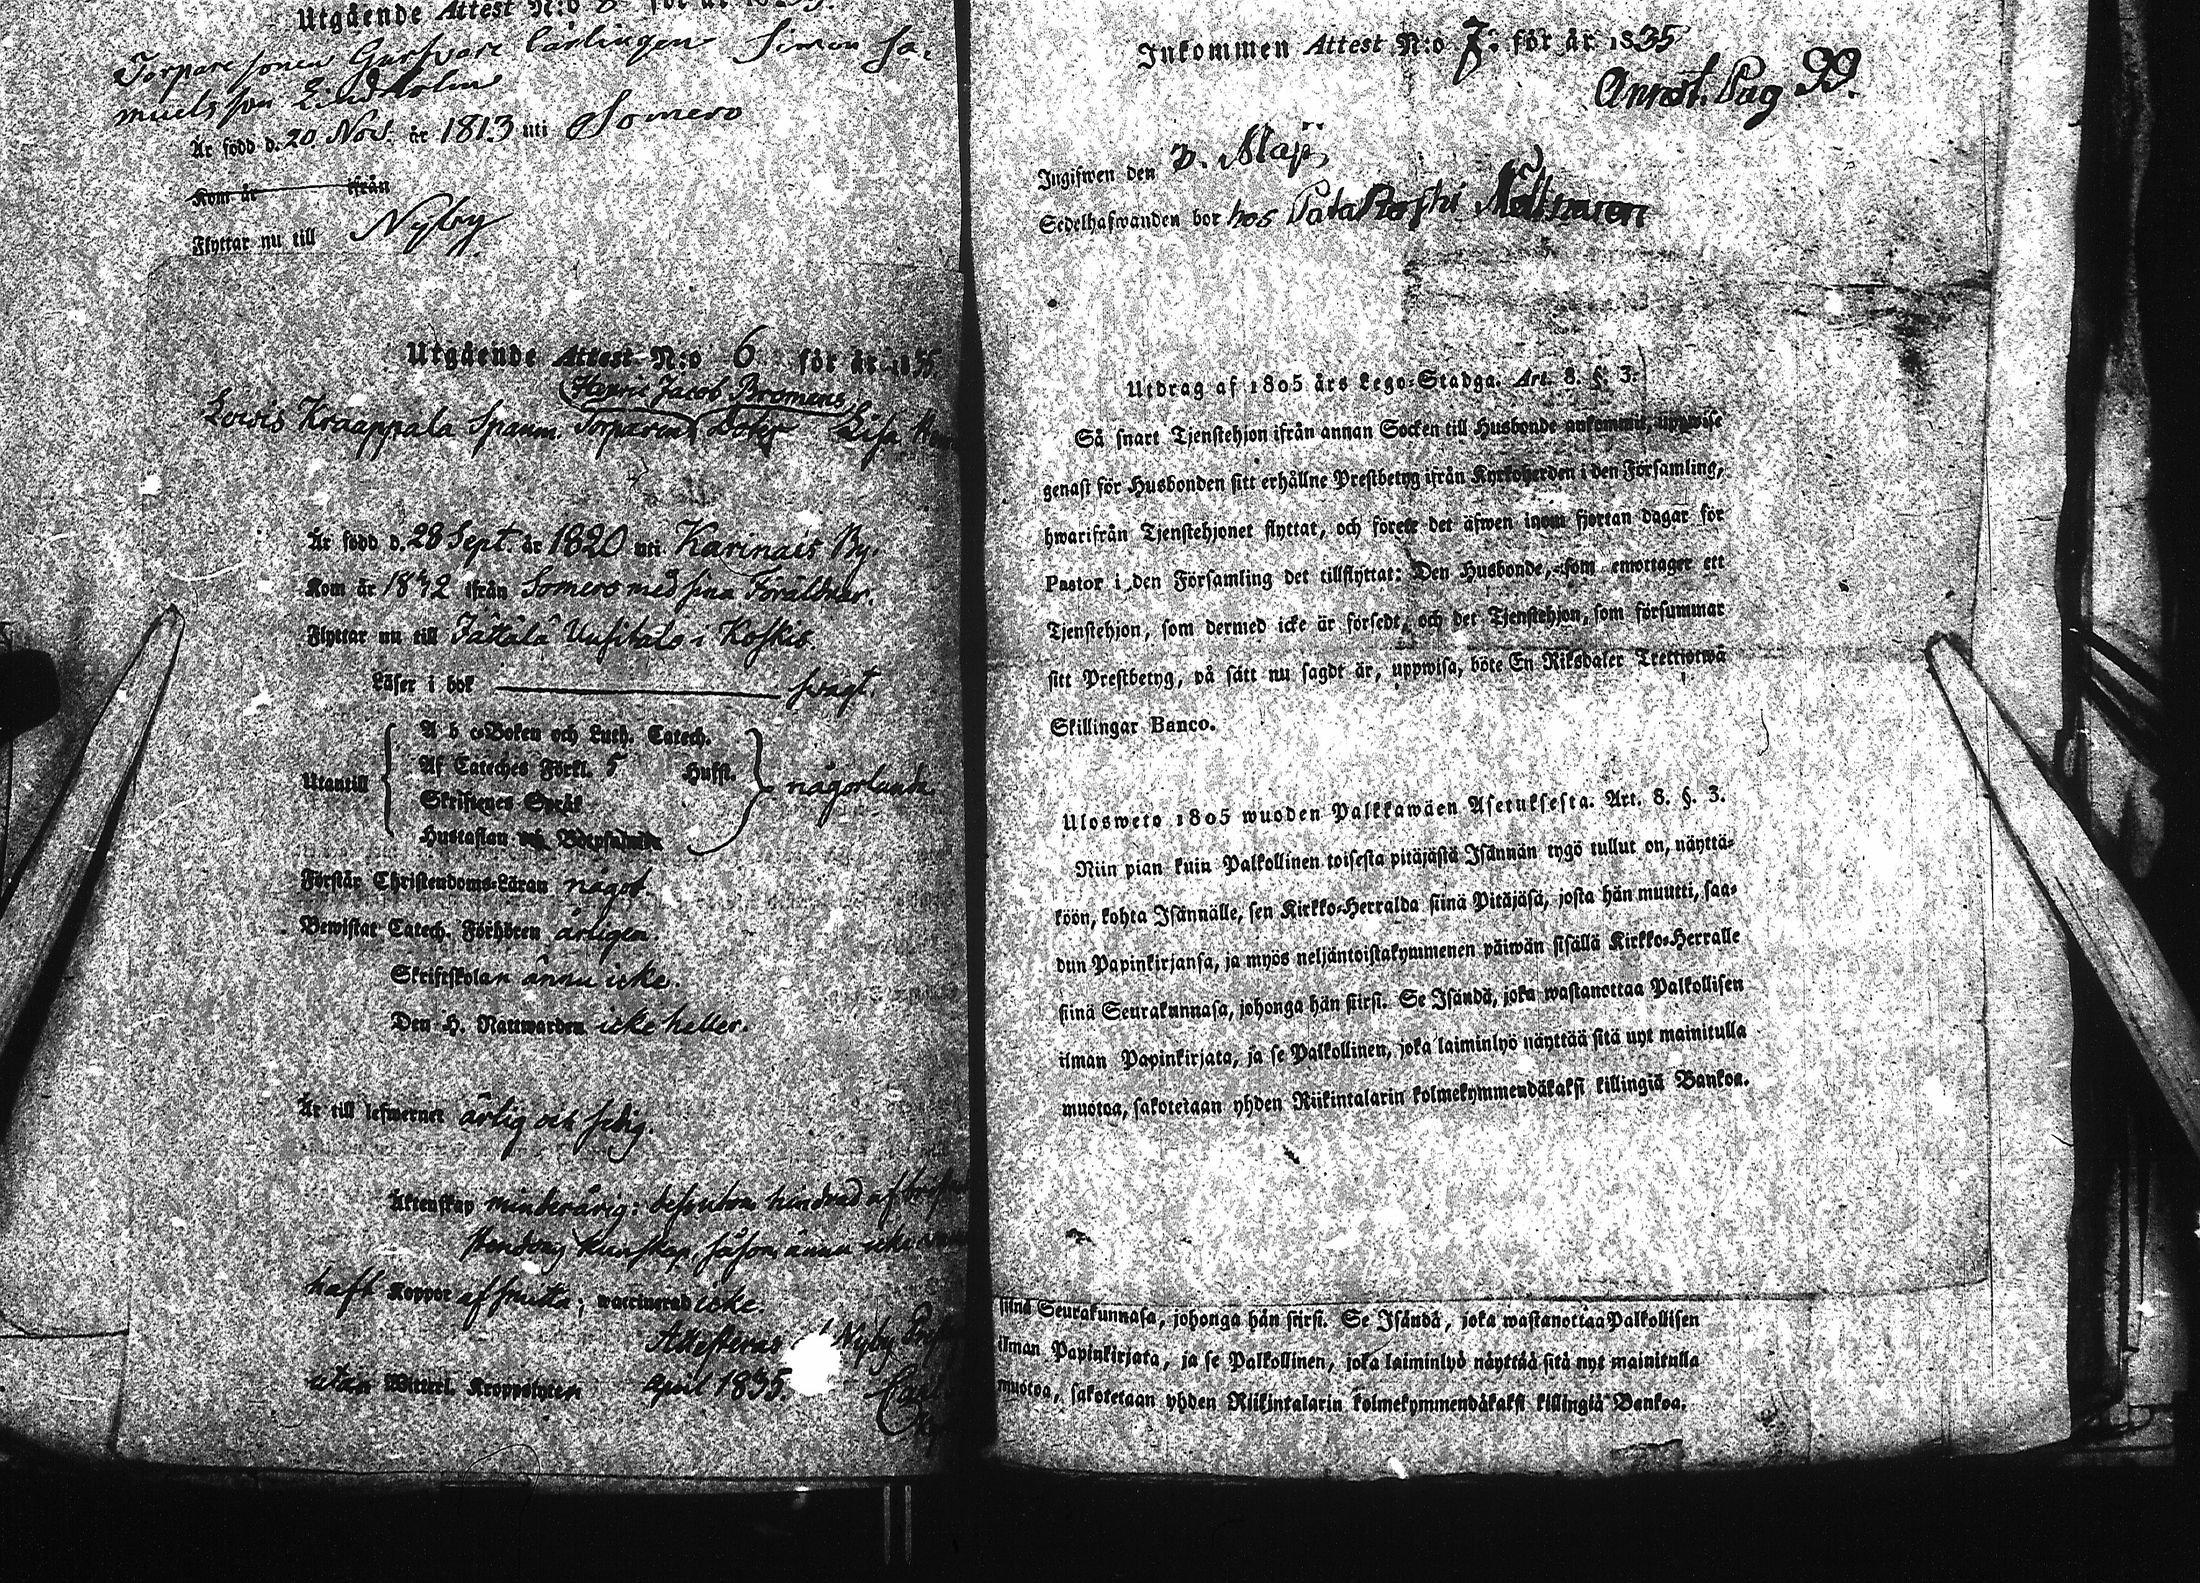 Utgående Attest N:o för år
Torpare sonen Garfvare Lärlingen Simon Sa-
muels son Lindholm
Är född d. 20 Nov. år 1813 uti Somero
Kom år ifrån
Flyttar nu till Nyby
Utgående Attest N:o 6 för år 1835
Henric Jacob Bromens
Lovis Kraappala Spanm. Torparens Doter Lisa
Är född d. 28 Sept. år 1820 uti Karinais By.
Kom år 1832 ifrån Somero med sina Föräldrar.
Flyttar nu till Jättälä Uusitalo i Koskis.
Läser i bok svagt.
A b c-Boken och Luth. Catech.
Af Cateches Förkl. 5 Hufst.
Utantill någorlunda
Skriftenes Språk
Hustaflan
Förstår Christendoms-Läran något.
Bewistat Catech. Förhören årligen.
Skriftskolan ännu icke.
Den H. Nattwarden icke heller.
Är till lefwernet ärlig och sedig.
Äktenskap minderårig: dessutom hindrad af
kunskap, såsom ännu icke
haft Koppor af smitta; waccinerad icke.
Attesteras Nyby
utan Witterl. Kroppslyten April 1835.
Inkommen Attest N:o 7. för år 1835
Annot. Pag 99.
Ingifwen den 3. Maji
Sedelhafwanden bor hos
Utdrag af 1805 års Lego-Stadga. Art. 8. §. 3.
Så snart Tjenstehjon ifrån annan Socken till Husbonde ankommit, uppwise
genast för Husbonden sitt erhållne Prestbetyg ifrån Kyrkoherden i den Församling,
hwarifrån Tjenstehjonet flyttat, och förete det äfwen inom fjortan dagar för
Pastor i den Församling det tillflyttat: Den Husbonde, som emottager ett
Tjenstehjon, som dermed icke är försedt, och det Tjenstehjon, som försummar
sitt Prestbetyg, på sätt nu sagdt är, uppwisa, böte En Riksdaler Trettiotwå
Skillingar Banco.
Ulosweto 1805 wuoden Palkkawäen Asetuksesta. Art. 8. §. 3.
Niin pian kuin Palkollinen toisesta pitäjästä Isännän tygö tullut on, näyttä-
köön, kohta Isännälle, sen Kirkko-Herralda siinä Pitäjäsä, josta hän muutti, saa-
dun Papinkirjansa, ja myös neljäntoistakymmenen päiwän sisällä Kirkko-Herralle
siinä Seurakunnasa, johonga hän siirsi. Se Isändä, joka wastanottaa Palkollisen
ilman Papinkirjata, ja se Palkollinen, joka laiminlyö näyttää sitä nyt mainitulla
muotoa, sakotetaan yhden Riikintalarin kolmekymmendäkaksi killingiä Bankoa.
siinä Seurakunnasa, johonga hän siirsi. Se Isändä, joka wastanottaa Palkollisen
ilman Papinkirjata, ja se Palkollinen, joka laiminlyö näyttää sitä nyt mainitulla
muotoa, sakotetaan yhden Riikintalarin kolmekymmendäkaksi killingiä Bankoa.